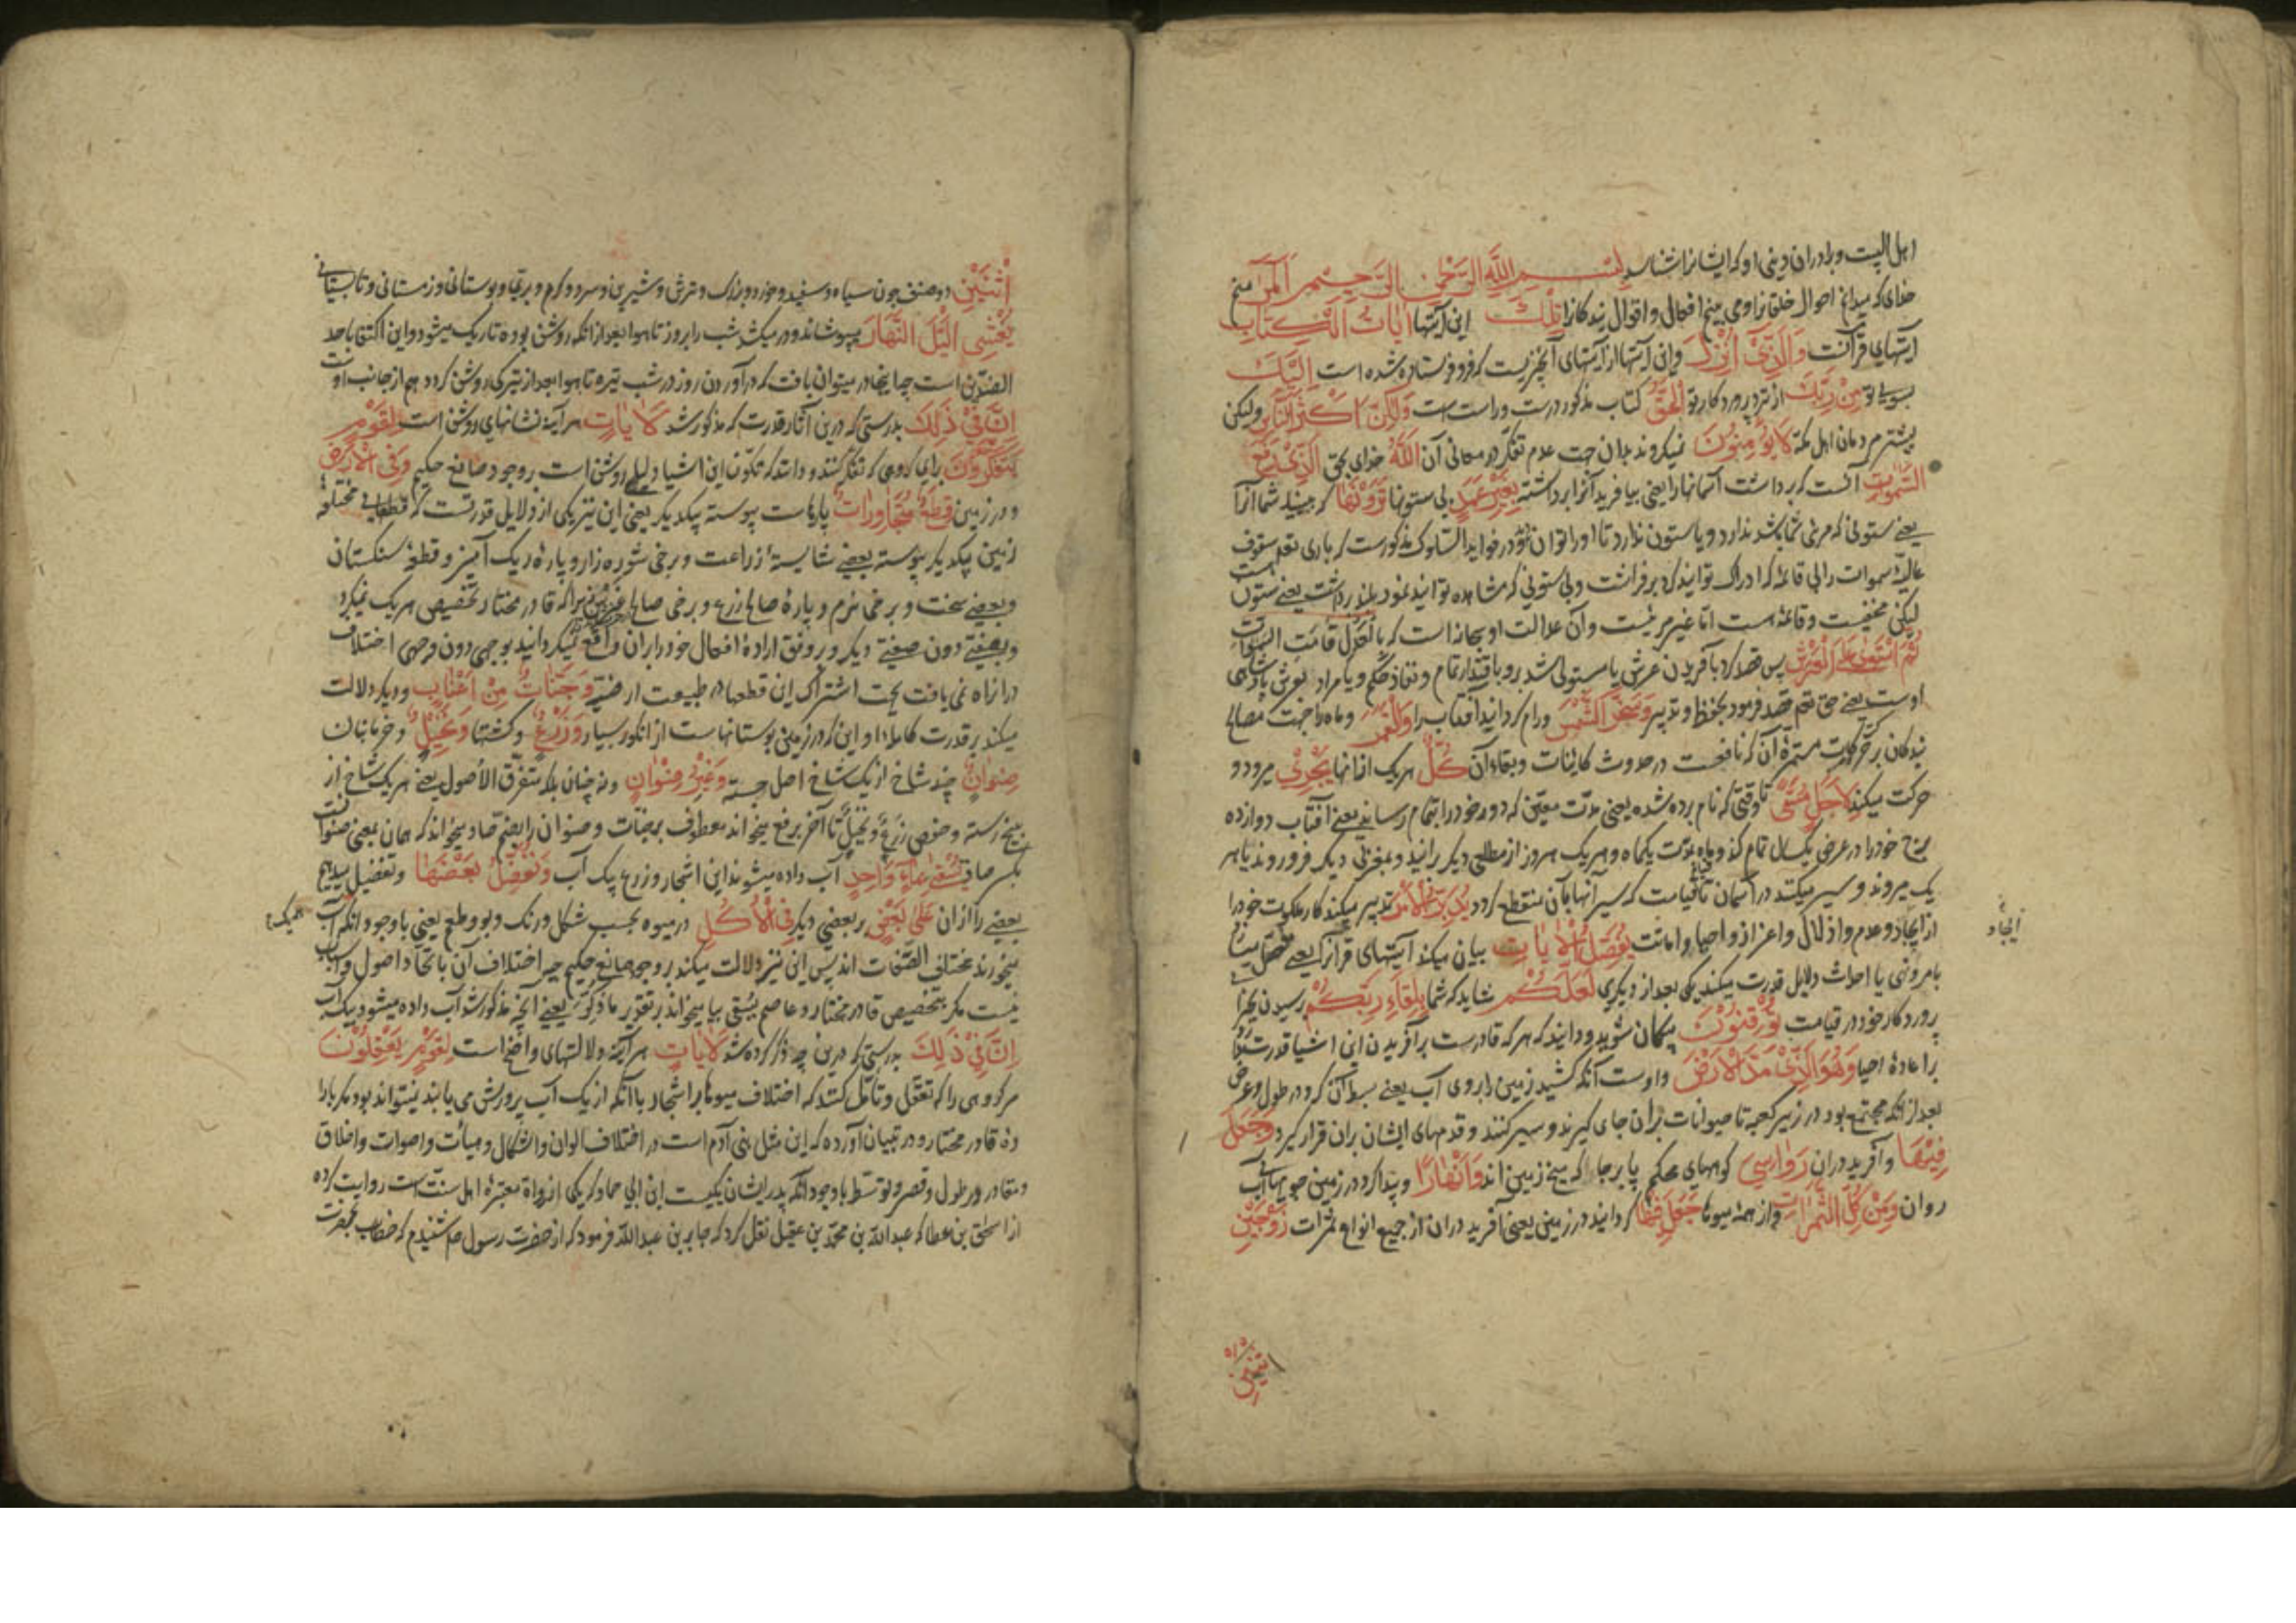 اهل البیت و برادران دینی او که ایشانرا شناسد بِسْمِ اللَّهِ الرَّحْمٰنِ الرَّحِيمِ الٓمٓرٰ منم
خدای که میدانم احوال خلقانرا و می بینم افعال و اقوال بندکانرا تِلْكَ این آیتها آيَاتُ الْكِتَابِ
آیتهای قرآنست وَالَّذِي أُنْزِلَ و این آیتها از آیتهای آنچیزیست که فرو فرستاده شده است إِلَيْكَ
بسوی تو مِنْ رَبِّكَ از نزد پروردکار تو الْحَقُّ کتاب مذکور درست و راست است وَلٰكِنَّ أَكْثَرَ النَّاسِ ولیکن
بیشتر مردمان اهل مکه لَا يُؤْمِنُونَ نمیکروند بدان جهت عدم تفکر در معانی آن اللَّهُ خدای بحق الَّذِي رَفَعَ
السَّمٰوَاتِ آنست که برداشت آسمانها را یعنی بیافرید آنرا برداشته بِغَيْرِ عَمَدٍ بی ستونها تَرَوْنَهَا که می بینید شما آنرا
یعنی ستونی که مرئی شما باشد ندارد و یا ستون ندارد تا اورا توان در فواید السلوک مذکورست که باری تعالی سقوف
عالیه سموات را بی قاعدهٔ که ادراک توانید کرد برفراشت و بی ستونی که مشاهده توانید نمود بلند برداشت یعنی ستون
لیکن مخفیست و قاعده هست اما غیر مرئیست و آن عدالت او سبحانه است که بالعدل قامت السموات
ثُمَّ اسْتَوَىٰ عَلَى الْعَرْشِ پس قصد کرد بآفریدن عرش یا مستولی شد برو باقتدار تمام و نفاذ حکم و یا مراد بعرش پادشاهی
اوست یعنی حق تعالی قصد فرمود بحفظ و تدبیر وَسَخَّرَ الشَّمْسَ و رام کردانید آفتاب را وَالْقَمَرَ و ماه را جهت مصالح
بندکان بر حرکت مستمرهٔ آن که نافعست در حدوث کاینات و بقاء آن كُلٌّ هر یک از آنها يَجْرِي میرود و
حرکت میکند لِأَجَلٍ مُسَمًّى تا وقتی که نام برده شده یعنی مدت معین که دور خود را بتمام رساند یعنی آفتاب دوازده
برج خود را در عرض یکسال تمام کند و ماه بمدت یکماه و هر یک هر روز از مطلعی دیکر برآیند و بمغربی دیکر فرو روند یا هر
یک میروند و سیر میکنند در آسمان تا قیامت که سیر آنها بآن منقطع کردد يُدَبِّرُ الْأَمْرَ تدبیر میکند کار ملکوت خود را
از ایجاد و عدم و اذلال و اعزاز و احیا و اماتت يُفَصِّلُ الْآيَاتِ بیان میکند آیتهای قرآنرا یعنی
بامر و نهی یا احداث دلایل قدرت میکند یکی بعد از دیکری لَعَلَّكُمْ شاید که شما بِلِقَاءِ رَبِّكُمْ برسیدن بجزا
پروردکار خود در قیامت تُوقِنُونَ بیکمان شوید و دانید که هر که قادرست بر آفریدن این اشیا قدرت
بر اعادهٔ احیا وَهُوَ الَّذِي مَدَّ الْأَرْضَ و اوست آنکه کشید زمین را بر روی آب یعنی بسط آن کرد در طول و عرض
بعد از آنکه مجتمع بود در زیر کعبه تا حیوانات بران جای کیرند و سیر کنند و قدمهای ایشان بران قرار کیرد وَجَعَلَ
فِيهَا و آفرید دران رَوَاسِيَ کوههای محکم پا برجا که میخ زمین اند وَأَنْهَارًا و پیدا کرد در زمین جویهای آب
روان وَمِنْ كُلِّ الثَّمَرَاتِ و از همه میوها جَعَلَ فِيهَا کردانید در زمین یعنی آفرید دران از جمیع انواع ثمرات زَوْجَيْنِ
ایجاد
اثنین
اثْنَيْنِ دو صنف چون سیاه و سفید و خورد و بزرک و ترش و شیرین و سرد و کرم و بری و بوستانی و زمستانی و تابستانی
يُغْشِي اللَّيْلَ النَّهَارَ میپوشاند و در میکشد شب را بروز تا هوا بعد از آنکه روشن بوده تاریک میشود و این اکتفا باحد
الضدین است چه اینجا در میتوان یافت که درآوردن روز در شب تیره تا هوا بعد از تیرکی روشن کردد هم از جانب اوست
إِنَّ فِي ذٰلِكَ بدرستی که درین آثار قدرت که مذکور شد لَآيَاتٍ هر آینه نشانهای روشن است لِقَوْمٍ
يَتَفَكَّرُونَ برای کروهی که تفکر کنند و دانند که تکون این اشیا دلیلی روشن است بر وجود صانع حکیم وَفِي الْأَرْضِ
و در زمین قِطَعٌ مُتَجَاوِرَاتٌ پارهاست پیوسته بیکدیکر یعنی این نیز یکی از دلایل قدرتست که قطعهای مختلفه
زمین بیکدیکر پیوسته بعضی شایستهٔ زراعت و برخی شوره زار و پاره ریک آمیز و قطعه سنکستان
و بعضی سخت و برخی نرم و پارهٔ صالح زرع و برخی صالح غرس زیرا که قادر مختار تخصیص هر یک نمیکرد
و بصفتی دون صفتی دیکر و بروفق ارادهٔ افعال خود را بران واقع نمیکردانید بوجهی دون وجهی اختلاف
درانها راه نمی یافت بجهت اشتراک این قطعها در طبیعت ارضیه وَجَنَّاتٌ مِنْ أَعْنَابٍ و دیکر دلالت
میکند بر قدرت کامله او این که در زمین بوستانهاست از انکور بسیار وَزَرْعٌ و کشتها وَنَخِيلٌ و خرمابنان
صِنْوَانٌ چند شاخ از یک شاخ اصل جسته وَغَيْرُ صِنْوَانٍ و نه چنان بلکه متفرق الاصول یعنی هر یک شاخ از
بیخ رسته و حفص زرع و نخیل تا آخر برفع میخواند معطوف بر جنات و صنوان را بضم صاد میخواند که همان بمعنی صنوانست
بکسر صاد يُسْقَىٰ بِمَاءٍ وَاحِدٍ آب داده میشوند این اشجار و زرع بیک آب وَنُفَضِّلُ بَعْضَهَا و تفضیل میدهیم
بعضی را از آن عَلَىٰ بَعْضٍ بر بعضی دیکر فِي الْأُكُلِ در میوه بحسب شکل و رنک و بو و طعم یعنی با وجود آنکه آب
میخورند مختلف الصفات اند پس این نیز دلالت میکند بر وجود صانع حکیم چه اختلاف آن با اتحاد اصول و اسباب
نیست مکر بتخصیص قادر مختار و عاصم یسقی بیا میخواند بر تقدیر ما ذکر یعنی آنچه مذکور شد آب داده میشود بیک آب
إِنَّ فِي ذٰلِكَ بدرستی که درین چه ذکر کرده شد لَآيَاتٍ هر آینه دلالتهای واضح است لِقَوْمٍ يَعْقِلُونَ
مر کروهی را که تعقل و تامل کنند که اختلاف میوها بر اشجار با آنکه از یک آب پرورش می یابند نیتواند بود مکر بارا
دهٔ قادر مختار و در تبیان آورده که این مثل بنی آدم است در اختلاف الوان و اشکال و هیأت و اصوات و اخلاق
و مقادر در طول و قصر و توسط با وجود آنکه پدر ایشان یکیست ابن ابی حماد که یکی از رواة معتبرهٔ اهل سنت است روایت کرده
از اسحق بن عطا که عبدالله بن محمد بن عقیل نقل کرد که جابر بن عبدالله فرمود که از حضرت رسول صلعم شنیدم که خطاب بحضرت